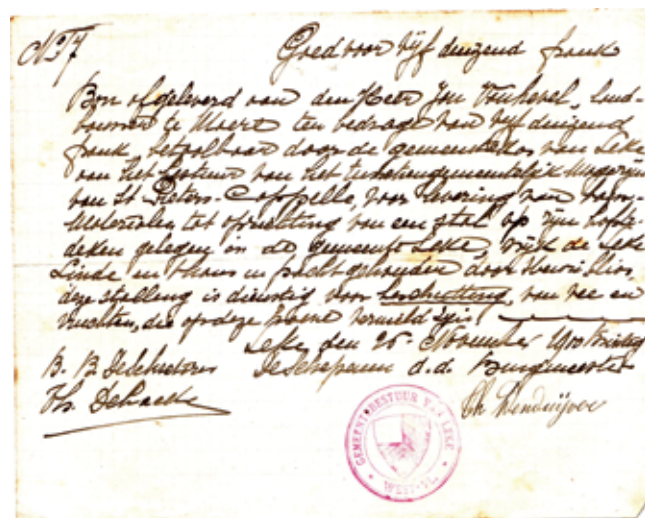 Nº 7
Goed voor vijf duizend frank
Bon afgeleverd aan den Heer Jon Vanhevel, land-
bouwer te Moere ten bedrage van vijf duizend
frank, betaalbaar door de gemeentekas van Leke
van het van het Magazijn
van St Pieters-Cappelle, voor levering van
Materialen tot oprichting van een stal op zijn
gelegen in de gemeente Leke, wijk de Leke
Linde en thans in pacht gehouden door Henri
deze stalling is dienstig voor beschutting van vee en
vruchten, die op deze vermeld zijn.
Leke den 26n November
De Schepenen d.d. Burgemeester
B. B. Deschuttere
Th.
Ch.
GEMEENTE-BESTUUR VAN LEKE
WEST-VL.